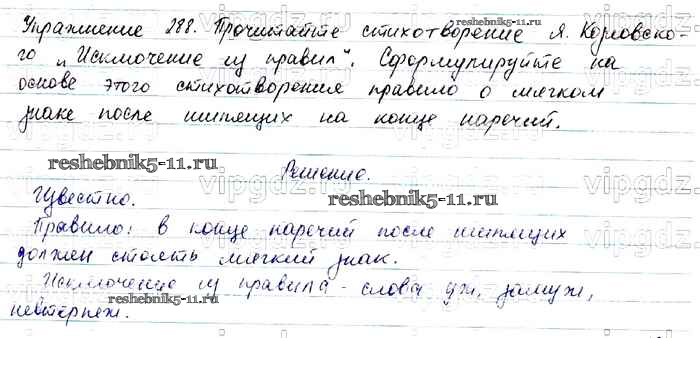 Упражнение 288. Прочитайте стихотворение Я. Козловско-
го „Исключение из правил". Сформулируйте на
основе этого стихотворения правило о мягком
знаке после шипящих на конце наречий.
Решение.
Известно.
Правило: в конце наречий после шипящих
должен стоять мягкий знак.
Исключение из правила - слова уж, замуж,
невтерпеж.
reshebnik5-11.ru
reshebnik5-11.ru
reshebnik5-11.ru
reshebnik5-11.ru
vipgdz.ru
vipgdz.ru
vipgdz.ru
vipgdz.ru